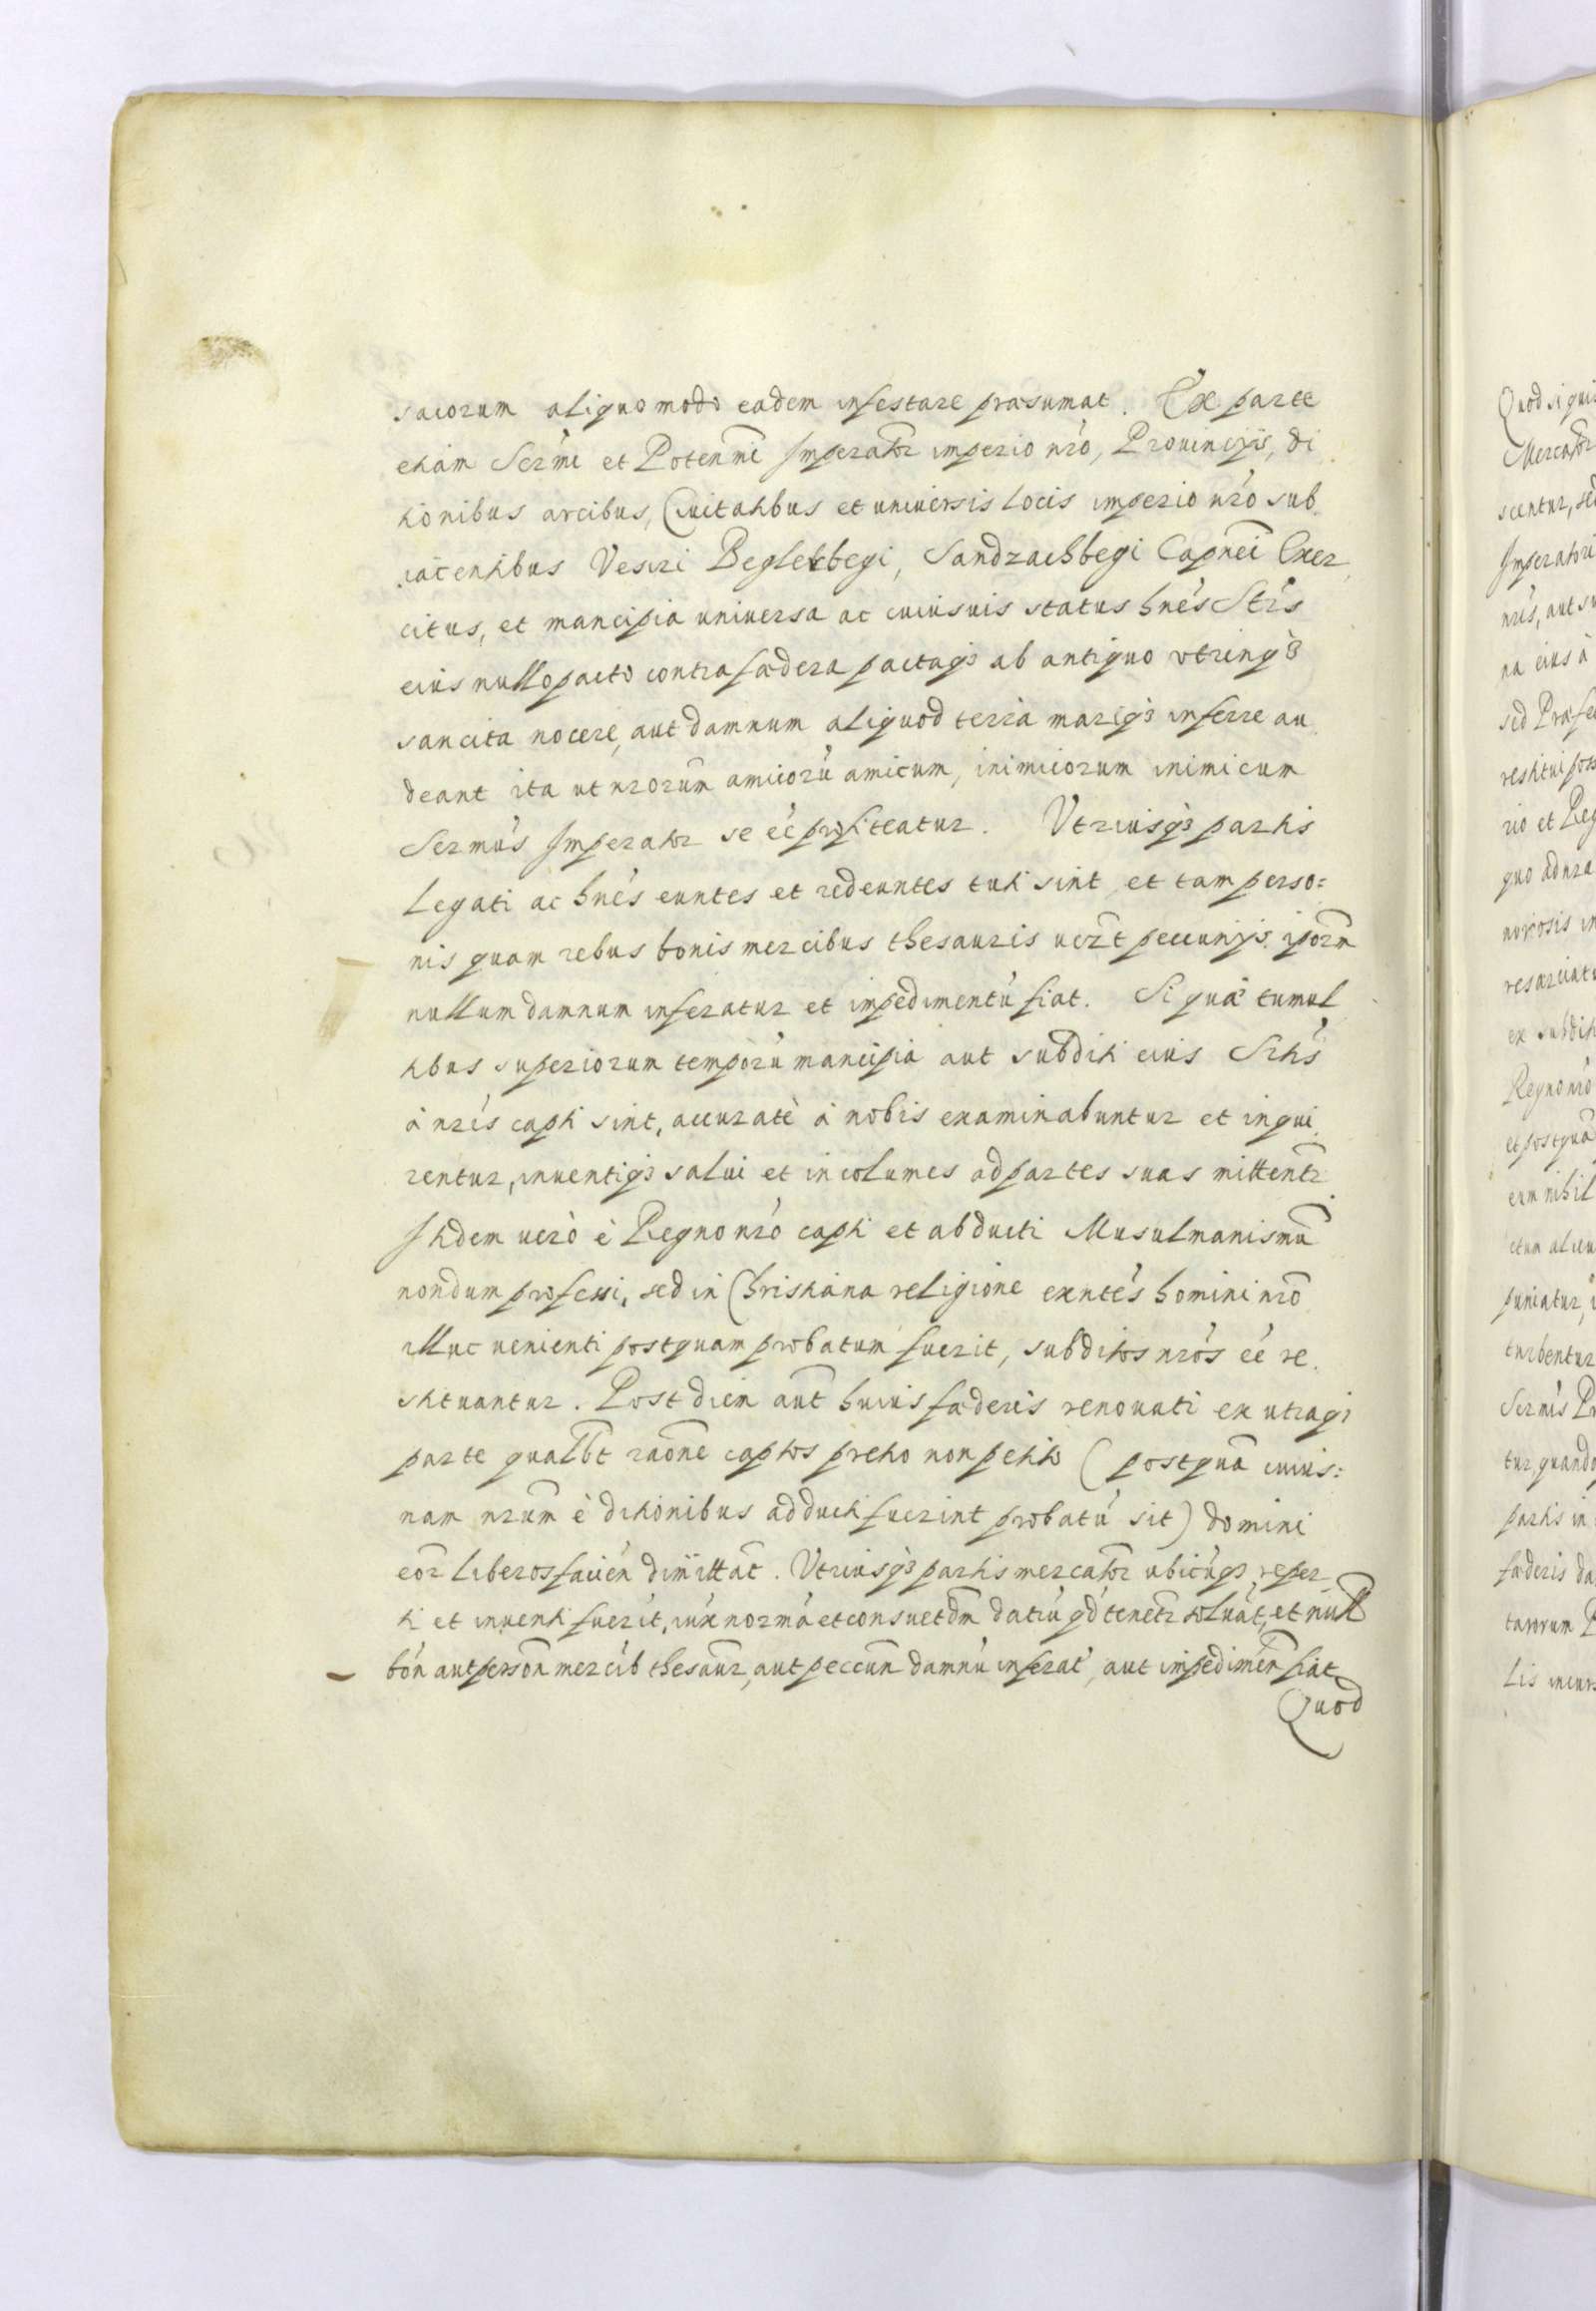 sacorum aliquo modo eadem infestare præsumat. Ex parte
etiam Sermi et Potenmi Imperator imperio nro, Provincijs, di
tionibus arcibus, Civitatibus et universis locis imperio nro sub
iacentibus Vesiri Beglerbegi, Sandzachbegi Capnei Exer
citus, et mancipia universa ac cuiusvis status hnes Stis
eius nullo pacto contra fædera pactaq3 ab antiquo utrinq3
sancita nocere, aut damnum aliquod terra mariq3 inferre au
deant ita ut nrorum amicorú amicum, inimicorum inimicum
Sermus Imperator se eé profiteatur. Utriusq3 partis
Legati ac hnes euntes et redeuntes tuti sint et tam perso=
nis quam rebus bonis mercibus thesauris vert pecunijs iporm
nullum damnum inferatur et impedimentú fiat. Si quá tumul
tibus superiorum temporú mancipia aut subditi eius Stis
à nris capti sint, accuratè à nobis examinabuntur et inqui
rentur, inventiq3 salvi et incolumes ad partes suas mittentr.
Itidem verò è Regno nro capti et abducti Musulmanismũ
nondum professi, sed in Christiana religione exntes homini nro
illuc venienti postquam probatum fuerit, subditos nros eé re
stituantur. Post diem aut huius fæderis renovati ex utraq3
parte qualbt raone captos pretio non petito (postquã cuius=
nam nrum è ditionibus adducti fuerint probatú sit) domini
eor liberos facien dimittat. Utriusq3 partis mercator ubicúq3 reper
ti et inventi fuerit, iux normá et consuetdm datiú qd tenetr solvat, et null
bon aut person mercib thesaur, aut peccun damnú inferat, aut impedimen fiat
Quod
Quod si quis
Mercator
Imperatori
nris, aut su
na eius à
sed Præfe
restitui pos
rio et Reg
quo ad nra
resarciat
ex subdit
Regno nro
et postquã
eum nihil
puniatur,
turbentur
Sermis
tur, quando
partis in
fæderis da
tarorum
lis incurs